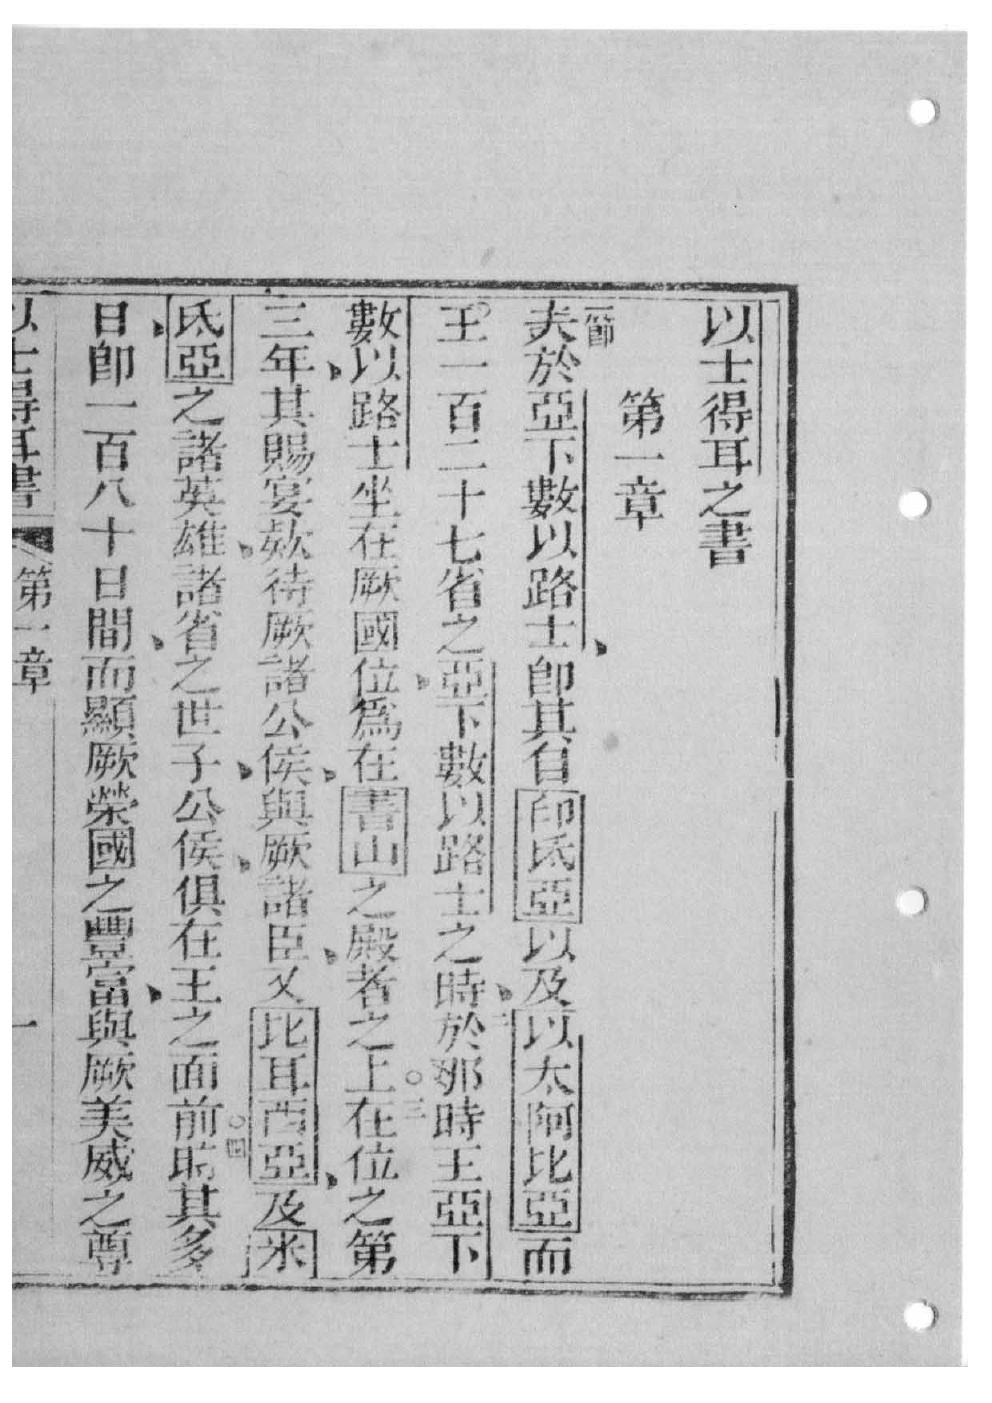 以士得耳之書
第一章
一節夫於亞下數以路士卽其自印氏亞以及以太阿比亞而
王一百二十七省之亞下數以路士之時○二於那時王亞下
數以路士坐在厥國位爲在書山之殿者之上○三在位之第
三年其賜宴欵待厥諸公侯與厥諸臣又比耳西亞及米
氐亞之諸英雄諸省之世子公侯俱在王之面前○四時其多
日卽一百八十日間而顯厥榮國之豐富與厥美威之尊
以士得耳書 第一章 一